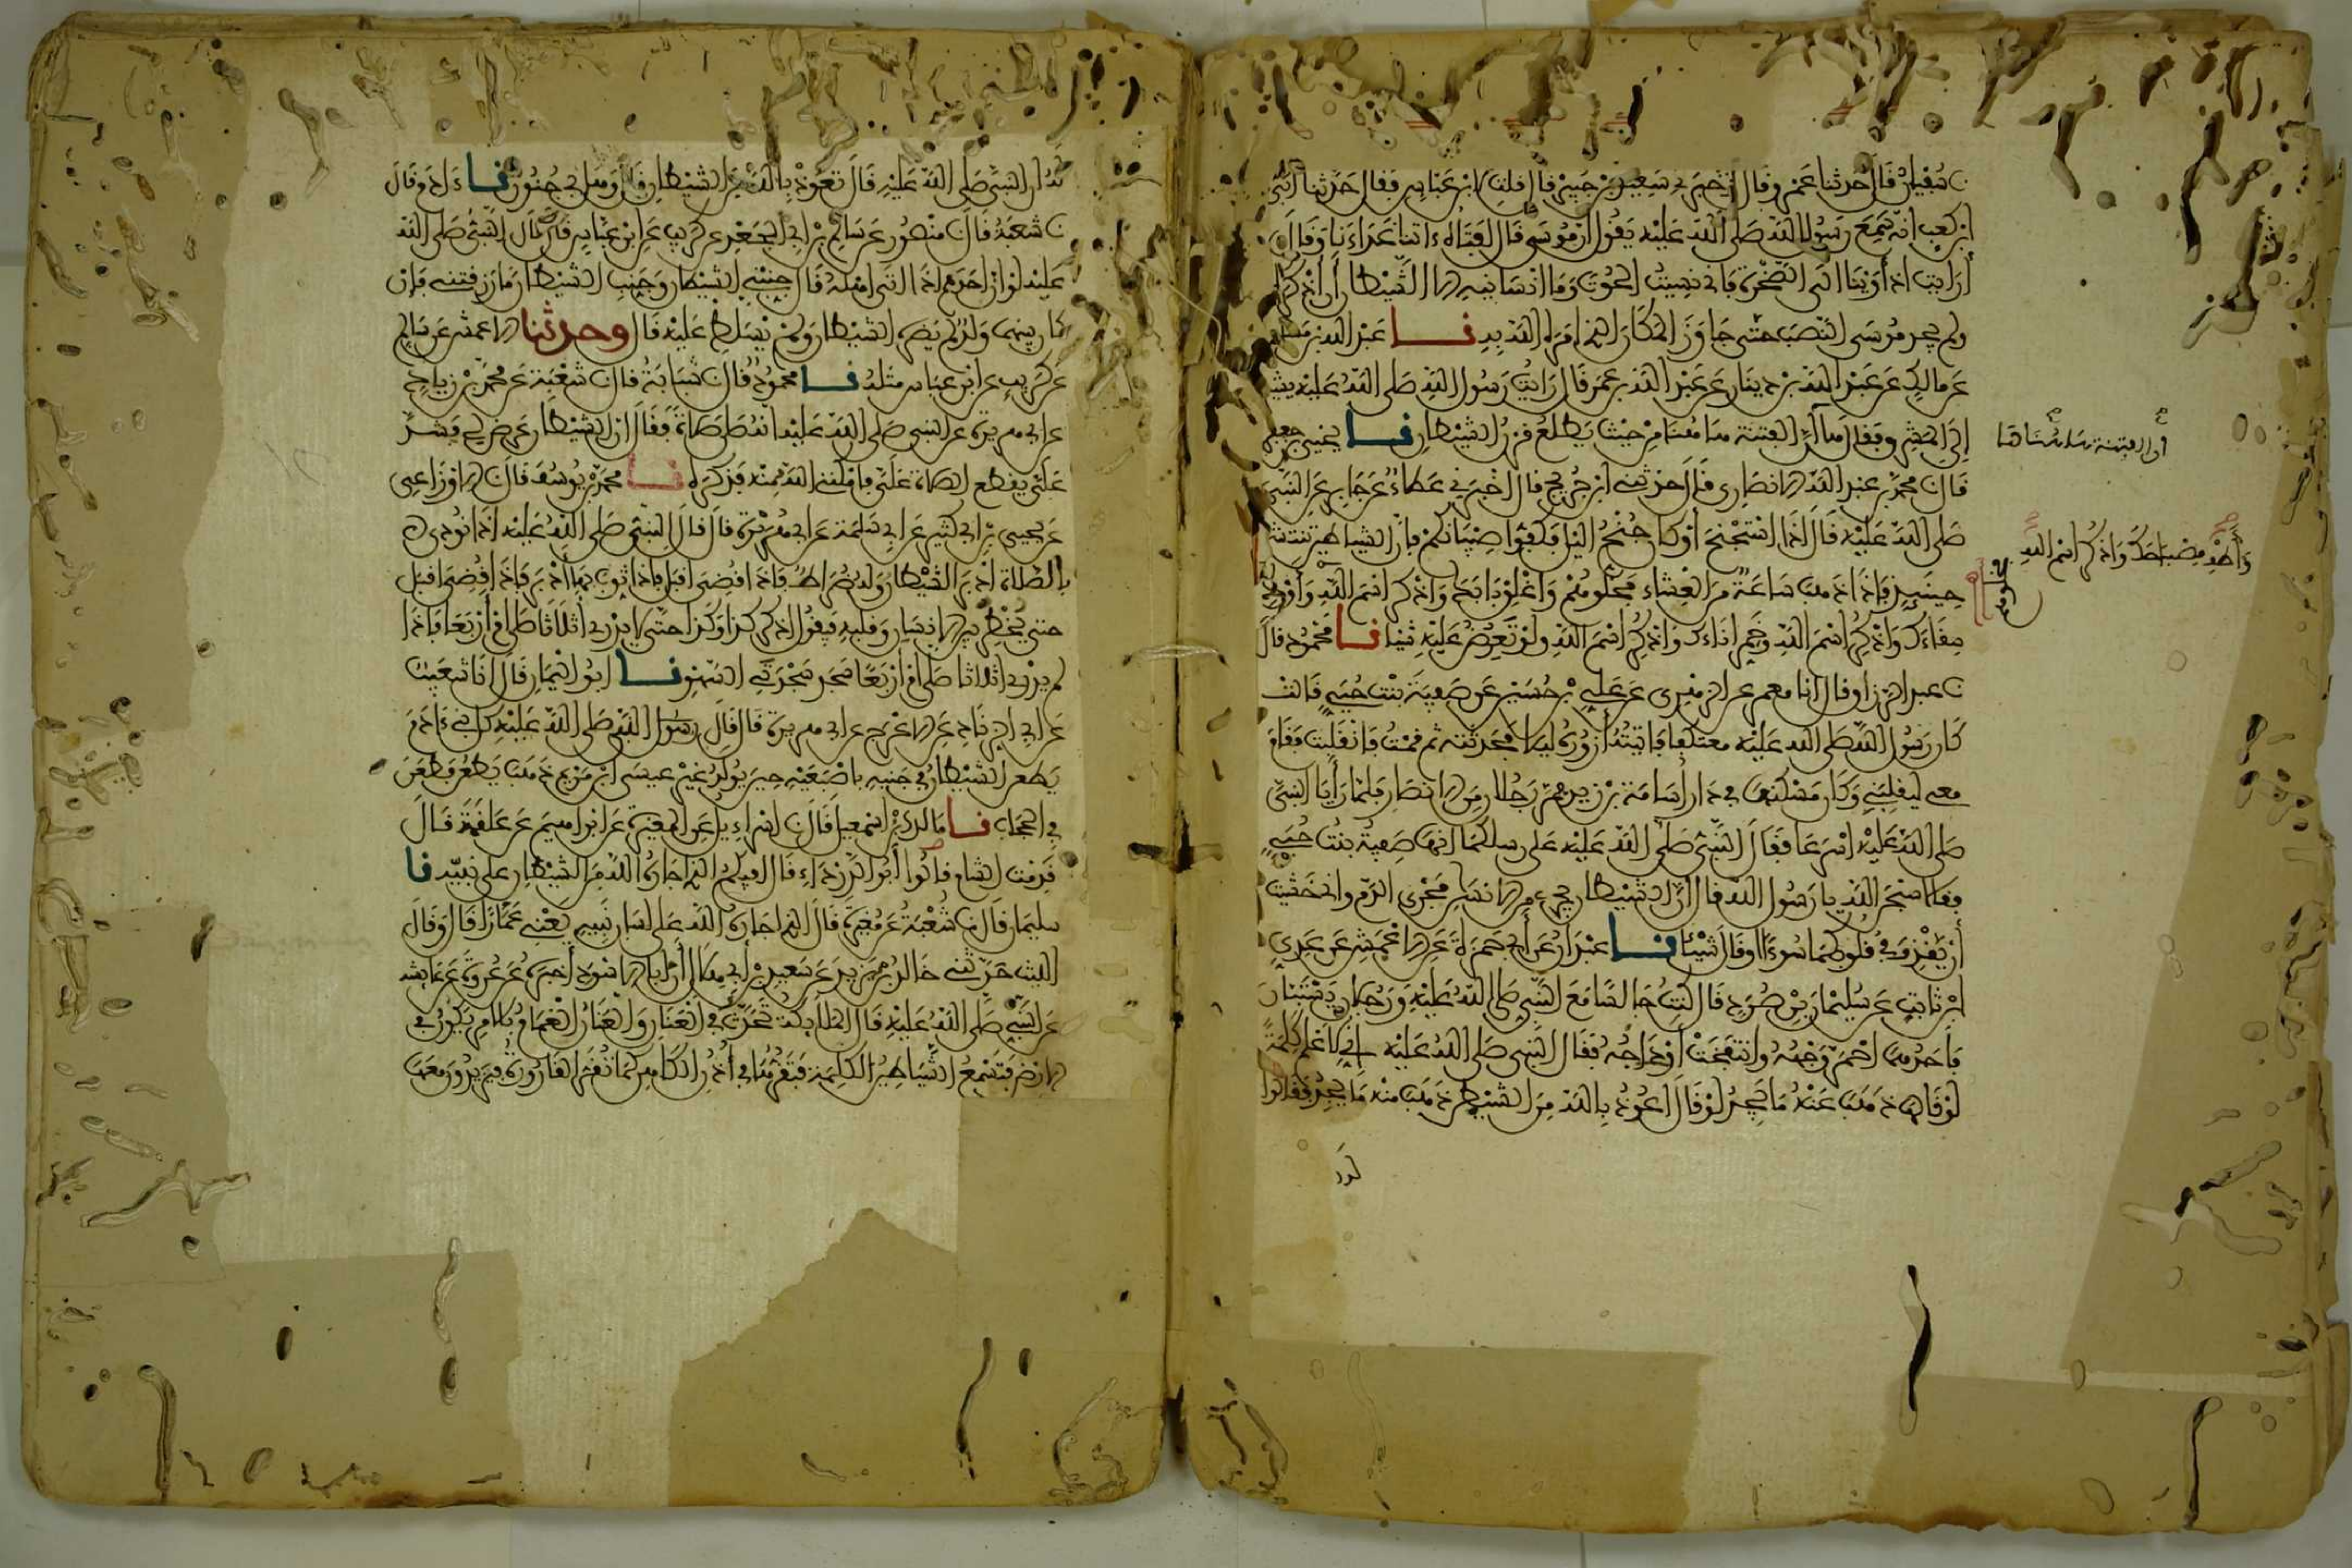 ن سفيان قال حدثنا عمر وقال اخبرني سعيد بن جبير قال قلت لابن عباس فقال حدثنا أبي
ابن كعب انه سمع رسول الله صلى الله عليه يقول ان موسى قال لفتاه ءاتنا غداءنا وقال
أرايت اذ أوينا الى الصخرة فاني نسيت الحوت وما انسانيه الا الشيطان أن اذكره
ولم يجد موسى النصب حتى جاوز المكان الذي امره الله به نا عبد الله بن مسلمة
عن مالك عن عبد الله بن دينار عن عبد الله بن عمر قال رايت رسول الله صلى الله عليه يشير
إلى المشرق وقال ها إن الفتنة ها هنا من حيث يطلع قرن الشيطان نا يحيى بن جعفر
قال ن محمد بن عبد الله الانصاري قال حدثني ابن جريج قال اخبرني عطاء عن جابر عن النبي
صلى الله عليه قال إذا استجنح أو كان جنح اليل فكفوا صبيانكم فإن الشياطين تنتشر
حينئذ فإذا ذهب ساعة من العشاء فحلوهم واغلق بابك واذكر اسم الله وأوك
سقاءك واذكر اسم الله وخمر اناءك واذكر اسم الله ولو تعرض عليه شيئا نا محمود قال
ن عبد الرزاق قال انا معمر عن الزهري عن علي بن حسين عن صفية بنت حيي قالت
كان رسول الله صلى الله عليه معتكفا فاتيته أزوره ليلا فحدثته ثم قمت فانقلبت فقام
معي ليقلبني وكان مسكنها في دار أسامة بن زيد فمر رجلان من الانصار فلما رأيا النبي
صلى الله عليه اسرعا فقال النبي صلى الله عليه على رسلكما انها صفية بنت حيي
فقالا سبحن الله يا رسول الله قال ان الشيطان يجري من الانسان مجرى الدم واني خشيت
أن يقذف في قلوبكما سوءا او قال شيئا نا عبدان عن أبي حمزة عن الاعمش عن عدي
ابن ثابت عن سليمان بن صرد قال كنت جالسا مع النبي صلى الله عليه ورجلان يستبان
فأحدهما احمر وجهه وانتفخت أوداجه فقال النبي صلى الله عليه إني لأعلم كلمة
لو قالها ذهب عنه ما يجد لو قال أعوذ بالله من الشيطن ذهب منه ما يجد فقالوا
لود
أن الفتنة هاهنا
وأطف مصباحك واذكر اسم الله
له ان النبي صلى الله عليه قال تعوذ بالله من الشيطان قال وهل بي جنون نا ءادم قال
ن شعبة قال ن منصور عن سالم بن ابي الجعد عن كريب عن ابن عباس قال قال النبي صلى الله
عليه لو ان احدهم اذا اتى اهله قال جنبني الشيطان وجنب الشيطان ما رزقتني فإن
كان بينهما ولد لم يضره الشيطان ولم يسلط عليه قال وحدثنا الاعمش عن سالم
عن كريب عن ابن عباس مثله نا محمود قال ن شبابة قال ن شعبة عن محمد بن زياد
عن ابي هريرة عن النبي صلى الله عليه انه صلى صلاة فقال ان الشيطان عرض لي فشد
علي يقطع الصلاة علي فامكنني الله منه فذكره نا محمد بن يوسف قال ن الاوزاعي
عن يحيى بن أبي كثير عن أبي سلمة عن ابي هريرة قال قال النبي صلى الله عليه اذا نودي
بالصلاة ادبر الشيطان وله ضراط فاذا قضي اقبل فإذا ثوب بها أدبر فاذا قضي اقبل
حتى يخطر بين الانسان وقلبه فيقول اذكر كذا وكذا حتى لا يدري أثلاثا صلى أم أربعا فإذا
لم يدر ثلاثا صلى أم أربعا سجد سجدتي السهو نا ابو اليمان قال انا شعيب
عن ابي الزناد عن الاعرج عن ابي هريرة قال قال رسول الله صلى الله عليه كل بني ءادم
يطعن الشيطان في جنبيه باصبعيه حين يولد غير عيسى ابن مريم ذهب يطعن فطعن
في الحجاب نا مالك بن اسمعيل قال ن اسراءيل عن المغيرة عن ابراهيم عن علقمة قال
قدمت الشام قالوا أبو الدرداء قال افيكم الذي اجاره الله من الشيطان على نبيه نا
سليمان قال ن شعبة عن مغيرة قال الذي اجاره الله على لسان نبيه يعني عمارا قال وقال
الليث حدثني خالد بن يزيد عن سعيد بن أبي هلال أن ابا الاسود أخبره عن عروة عن عايشة
عن النبي صلى الله عليه قال الملائكة تحدث في العنان والعنان الغمام بالامر يكون في
الارض فتسمع الشياطين الكلمة فتقرها في أذن الكاهن كما تقر القارورة فيزيدون معها